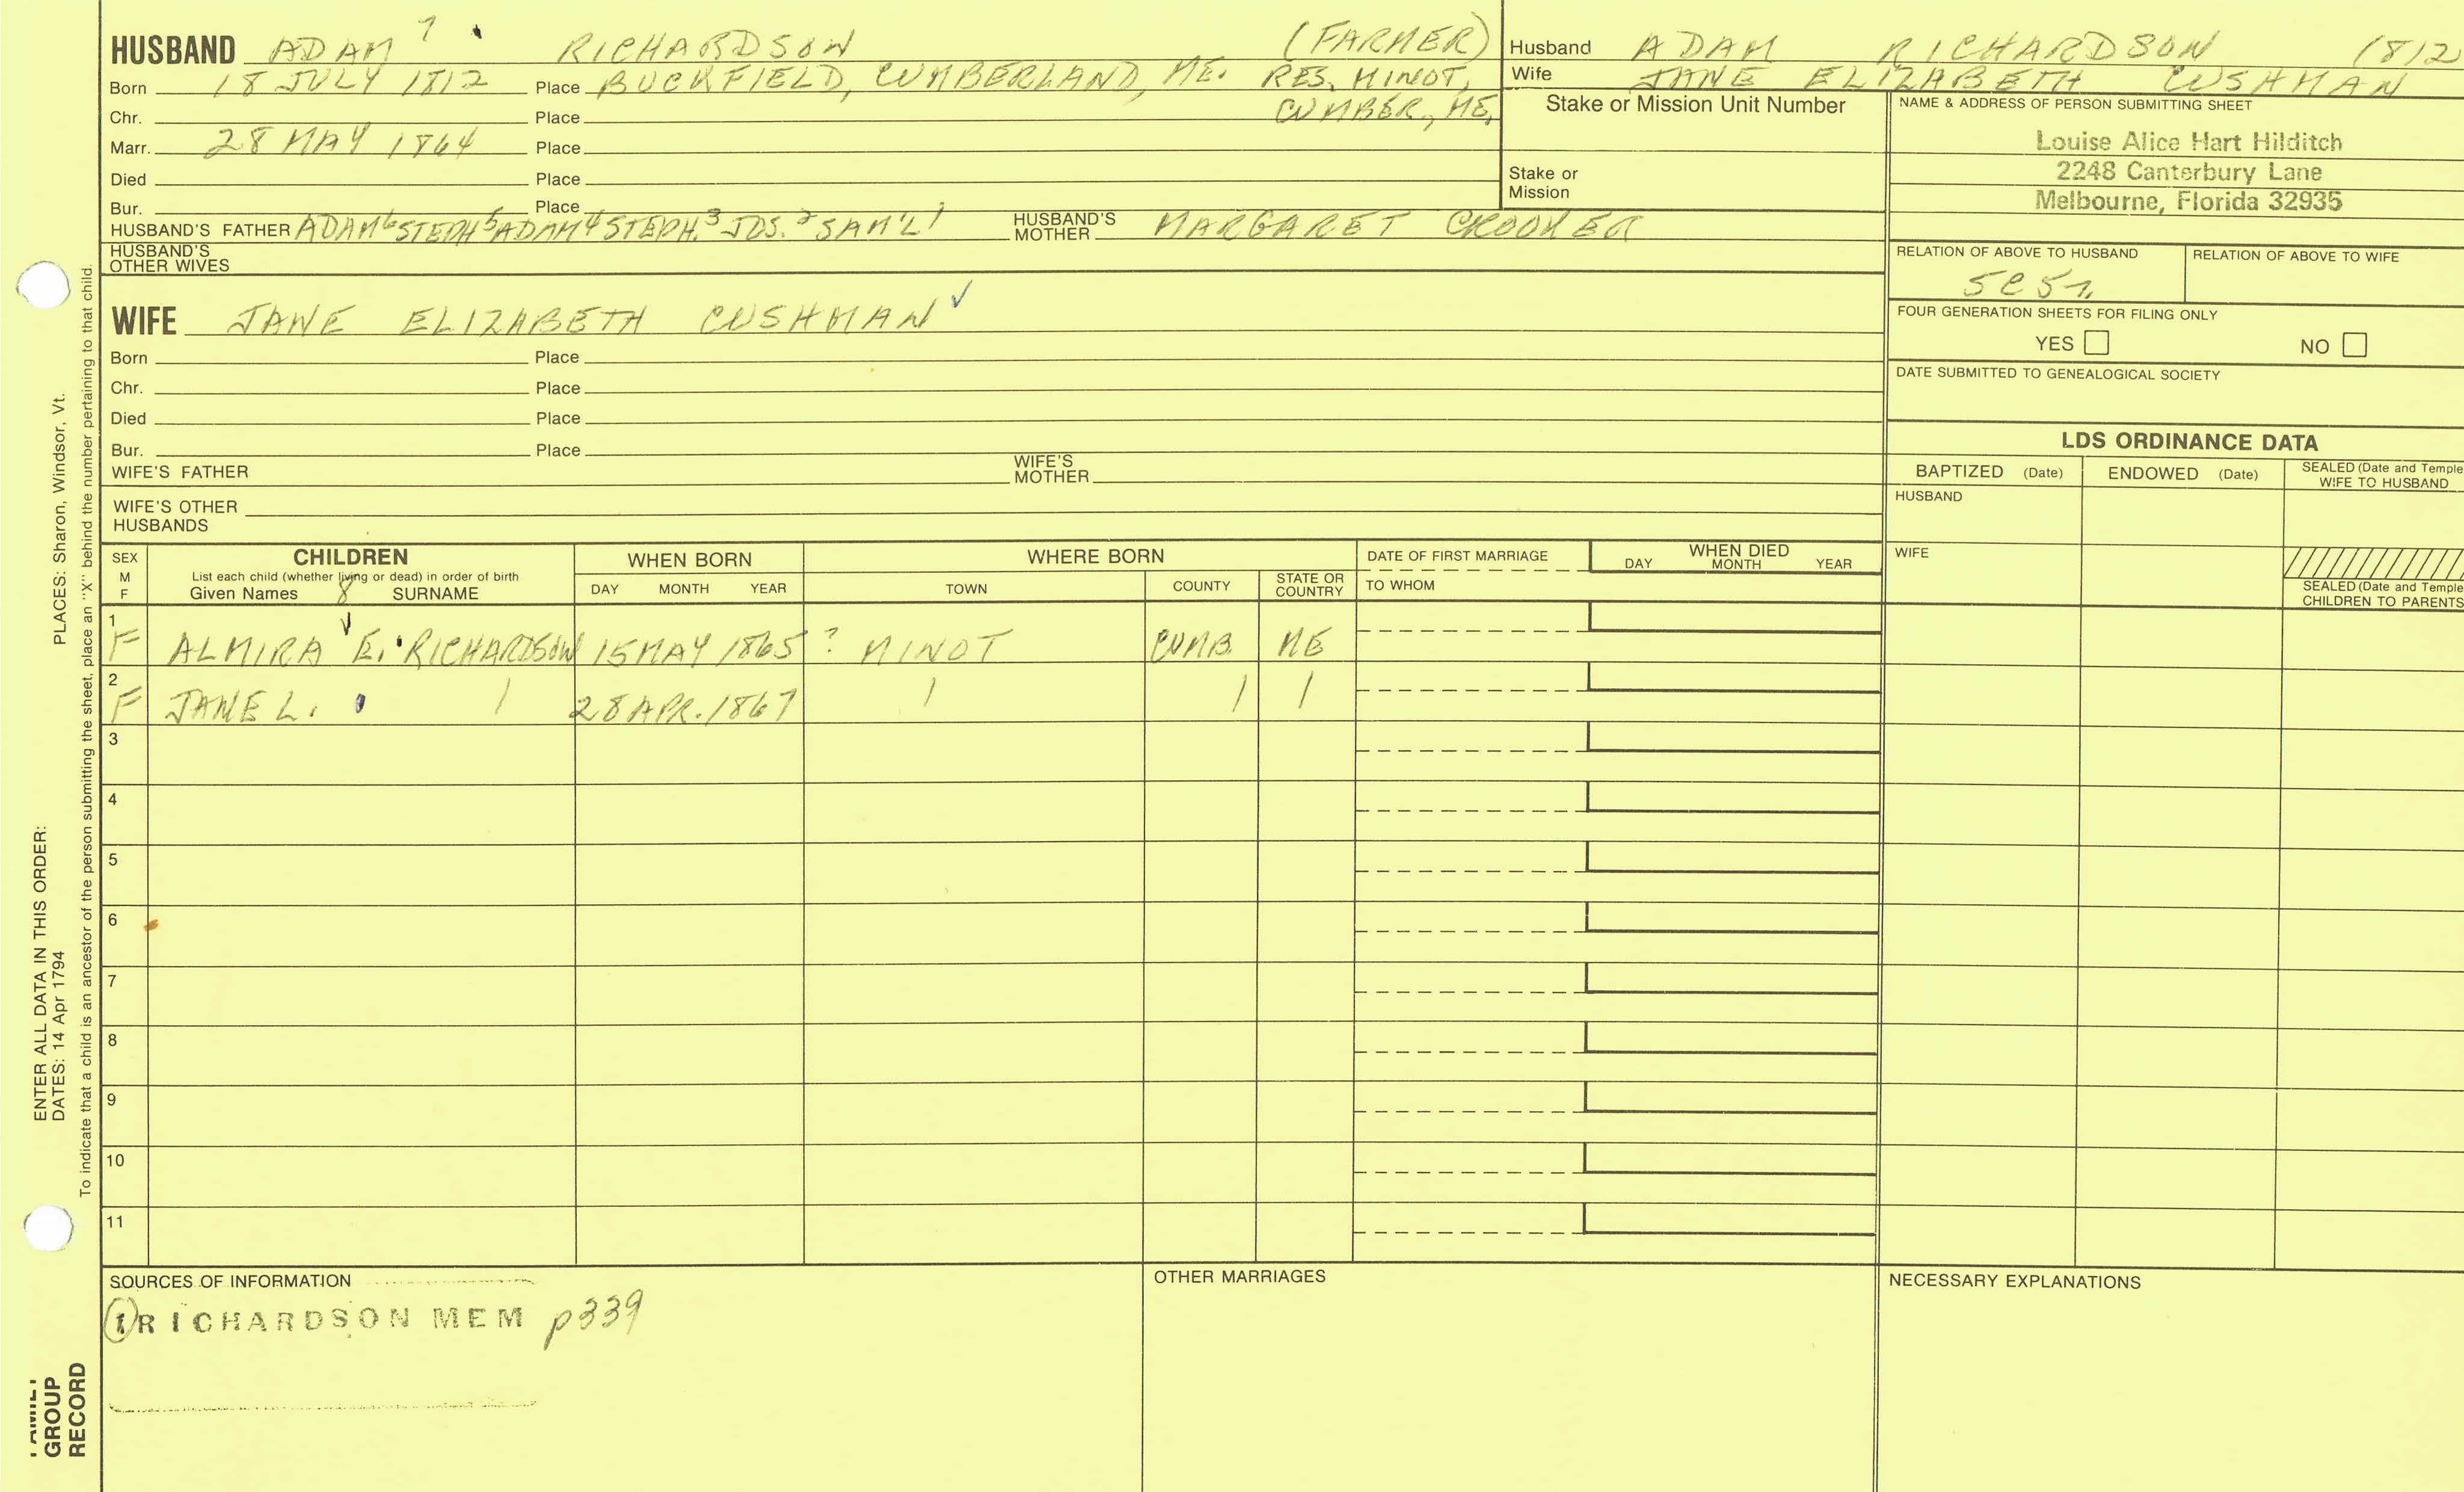 HUSBAND ADAM 7 RICHARDSON (FARMER)
Born 18 JULY 1812 Place BUCKFIELD, CUMBERLAND, ME. RES. MINOT,
CUMBER, ME.
Chr. Place
Marr. 28 MAY 1864 Place
Died Place
Bur. Place
HUSBAND'S FATHER ADAM 6 STEPH 5 ADAM 4 STEPH. 3 JOS. 2 SAM'L 1 HUSBAND'S MOTHER MARGARET CROOKER
HUSBAND'S OTHER WIVES
Husband ADAM RICHARDSON 1812
Wife JANE ELIZABETH CUSHMAN
Stake or Mission Unit Number
Stake or Mission
NAME & ADDRESS OF PERSON SUBMITTING SHEET
Louise Alice Hart Hilditch
2248 Canterbury Lane
Melbourne, Florida 32935
RELATION OF ABOVE TO HUSBAND RELATION OF ABOVE TO WIFE
FOUR GENERATION SHEETS FOR FILING ONLY
YES NO
DATE SUBMITTED TO GENEALOGICAL SOCIETY
WIFE JANE ELIZABETH CUSHMAN
Born Place
Chr. Place
Died Place
Bur. Place
WIFE'S FATHER WIFE'S MOTHER
WIFE'S OTHER HUSBANDS
LDS ORDINANCE DATA
BAPTIZED (Date) ENDOWED (Date) SEALED (Date and Temple
WIFE TO HUSBAND
HUSBAND
WIFE
SEALED (Date and Temple
CHILDREN TO PARENTS
SEX M F CHILDREN WHEN BORN WHERE BORN DATE OF FIRST MARRIAGE WHEN DIED
List each child (whether living or dead) in order of birth
Given Names 8 SURNAME DAY MONTH YEAR TOWN COUNTY STATE OR COUNTRY TO WHOM DAY MONTH YEAR
1 F ALMIRA E. RICHARDSON 15 MAY 1865 ? MINOT CUMB. ME
2 F JANE L. 28 APR. 1867
3
4
5
6
7
8
9
10
11
SOURCES OF INFORMATION
1 RICHARDSON MEM p339
OTHER MARRIAGES
NECESSARY EXPLANATIONS
ENTER ALL DATA IN THIS ORDER:
DATES: 14 Apr 1794 PLACES: Sharon, Windsor, Vt.
To indicate that a child is an ancestor of the person submitting the sheet, place an "X" behind the number pertaining to that child.
FAMILY GROUP RECORD